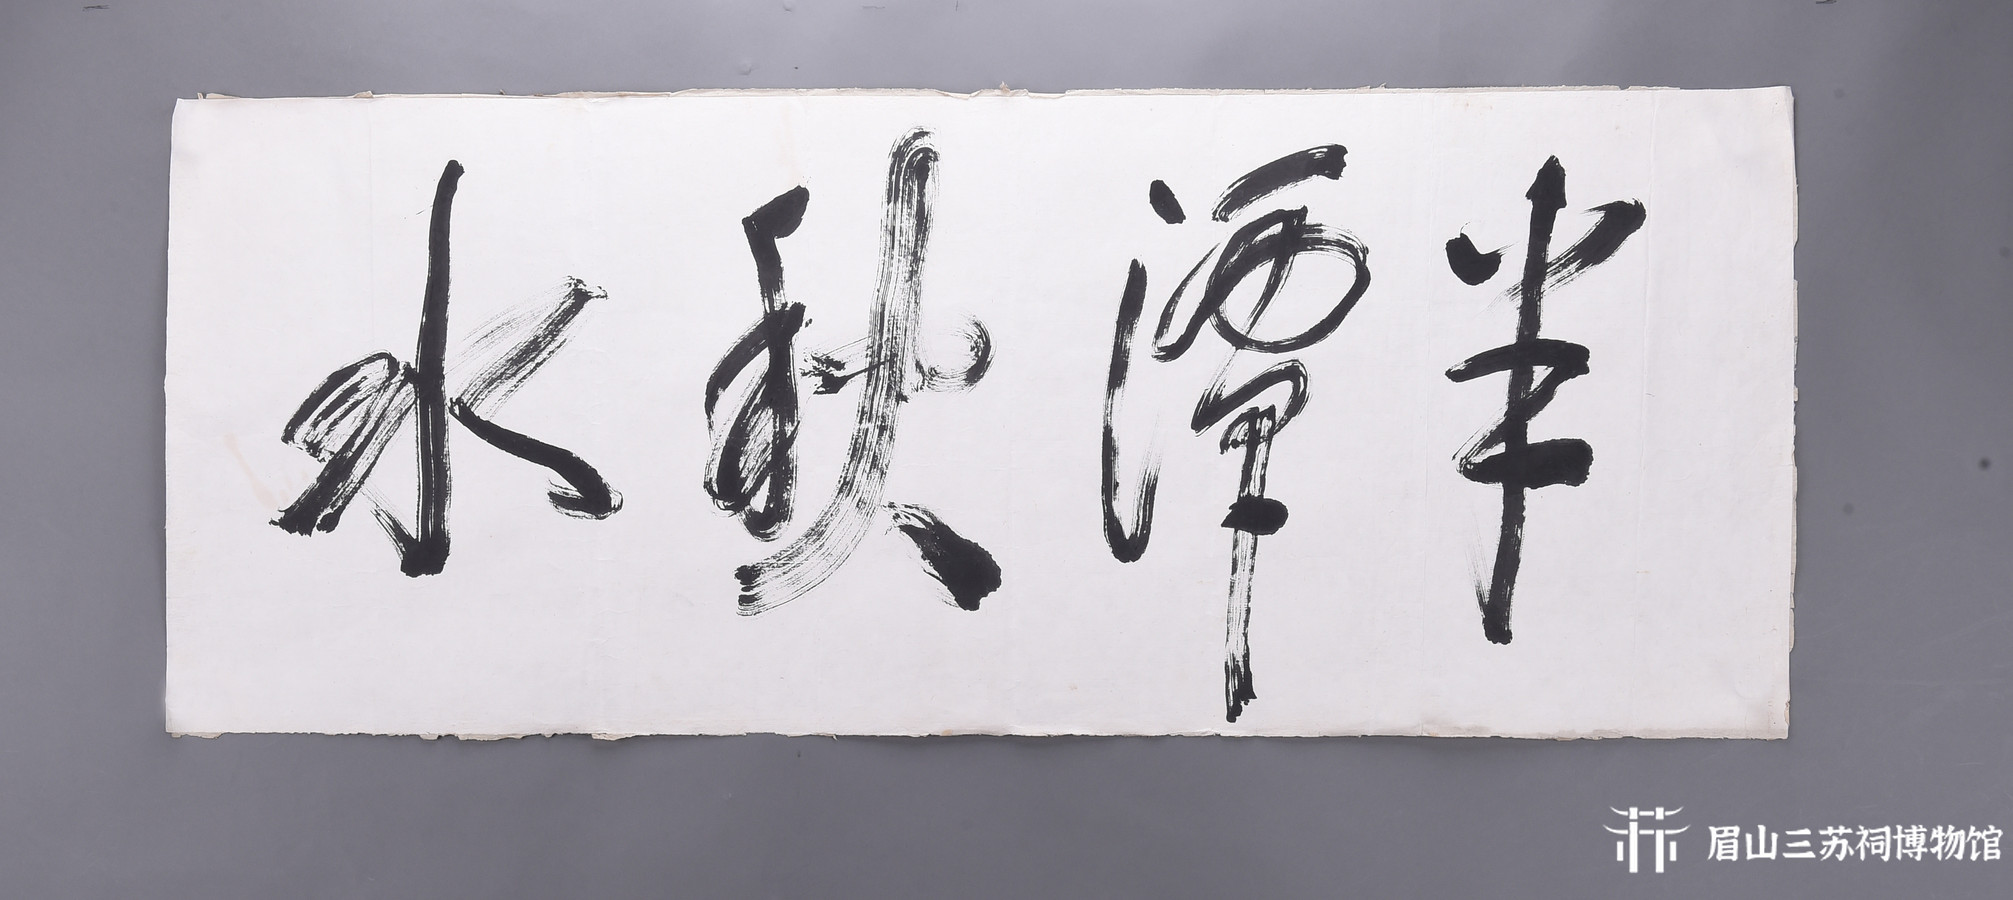 半潭秋水
眉山三苏祠博物馆